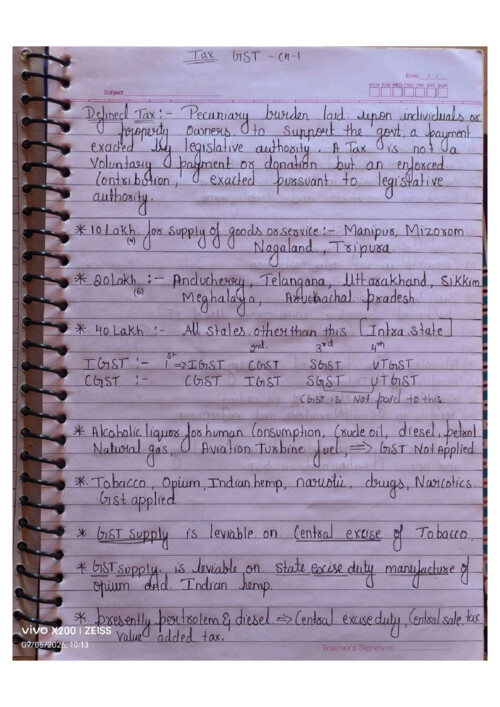 Tax GST - CH-1
Date / /
MON TUE WED THU FRI SAT SUN
Subject
Defined Tax :- Pecuniary burden laid upon individuals or
property owners to support the govt. a payment
exacted by legislative authority. A Tax is not a
voluntary payment or donation but an enforced
Contribution, exacted pursuant to legislative
authority.
* 10 Lakh for supply of goods or service :- Manipur, Mizorom
(4) Nagaland, Tripura
* 20 Lakh :- Anducherry, Telangana, Uttarakhand, Sikkim
(6) Meghalaya, Arunachal pradesh
* 40 Lakh :- All states other than this [Intra State]
1st 2nd 3rd 4th
IGST :- => IGST CGST SGST UTGIST
CGST :- CGIST IGIST SGST UTGIST
CGIST is Not paid to this
* Alcoholic liquor for human Consumption, Crude oil, diesel, petrol
Natural gas, Aviation Turbine fuel, => GIST Not Applied
* Tobacco, Opium, Indian hemp, narcotic, drugs, Narcotics
Gist applied
* GIST Supply is leviable on Central excise of Tobacco
* GIST supply is leviable on state excise duty manufacture of
opium and Indian hemp.
* presently & diesel => Central excise duty, Central sale tax
Value added tax.
vivo X200 | ZEISS
09/06/2026, 10:13
Teacher's Signature